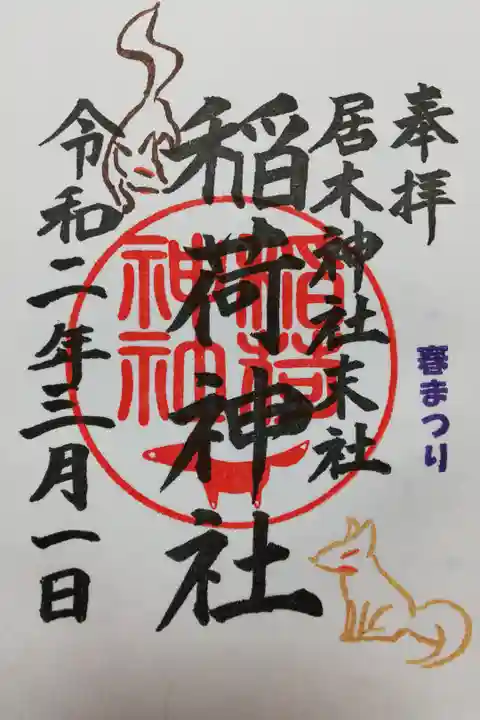 奉拝
春まつり
居木神社末社
稲荷神社
稲荷
神社
令和二年三月一日